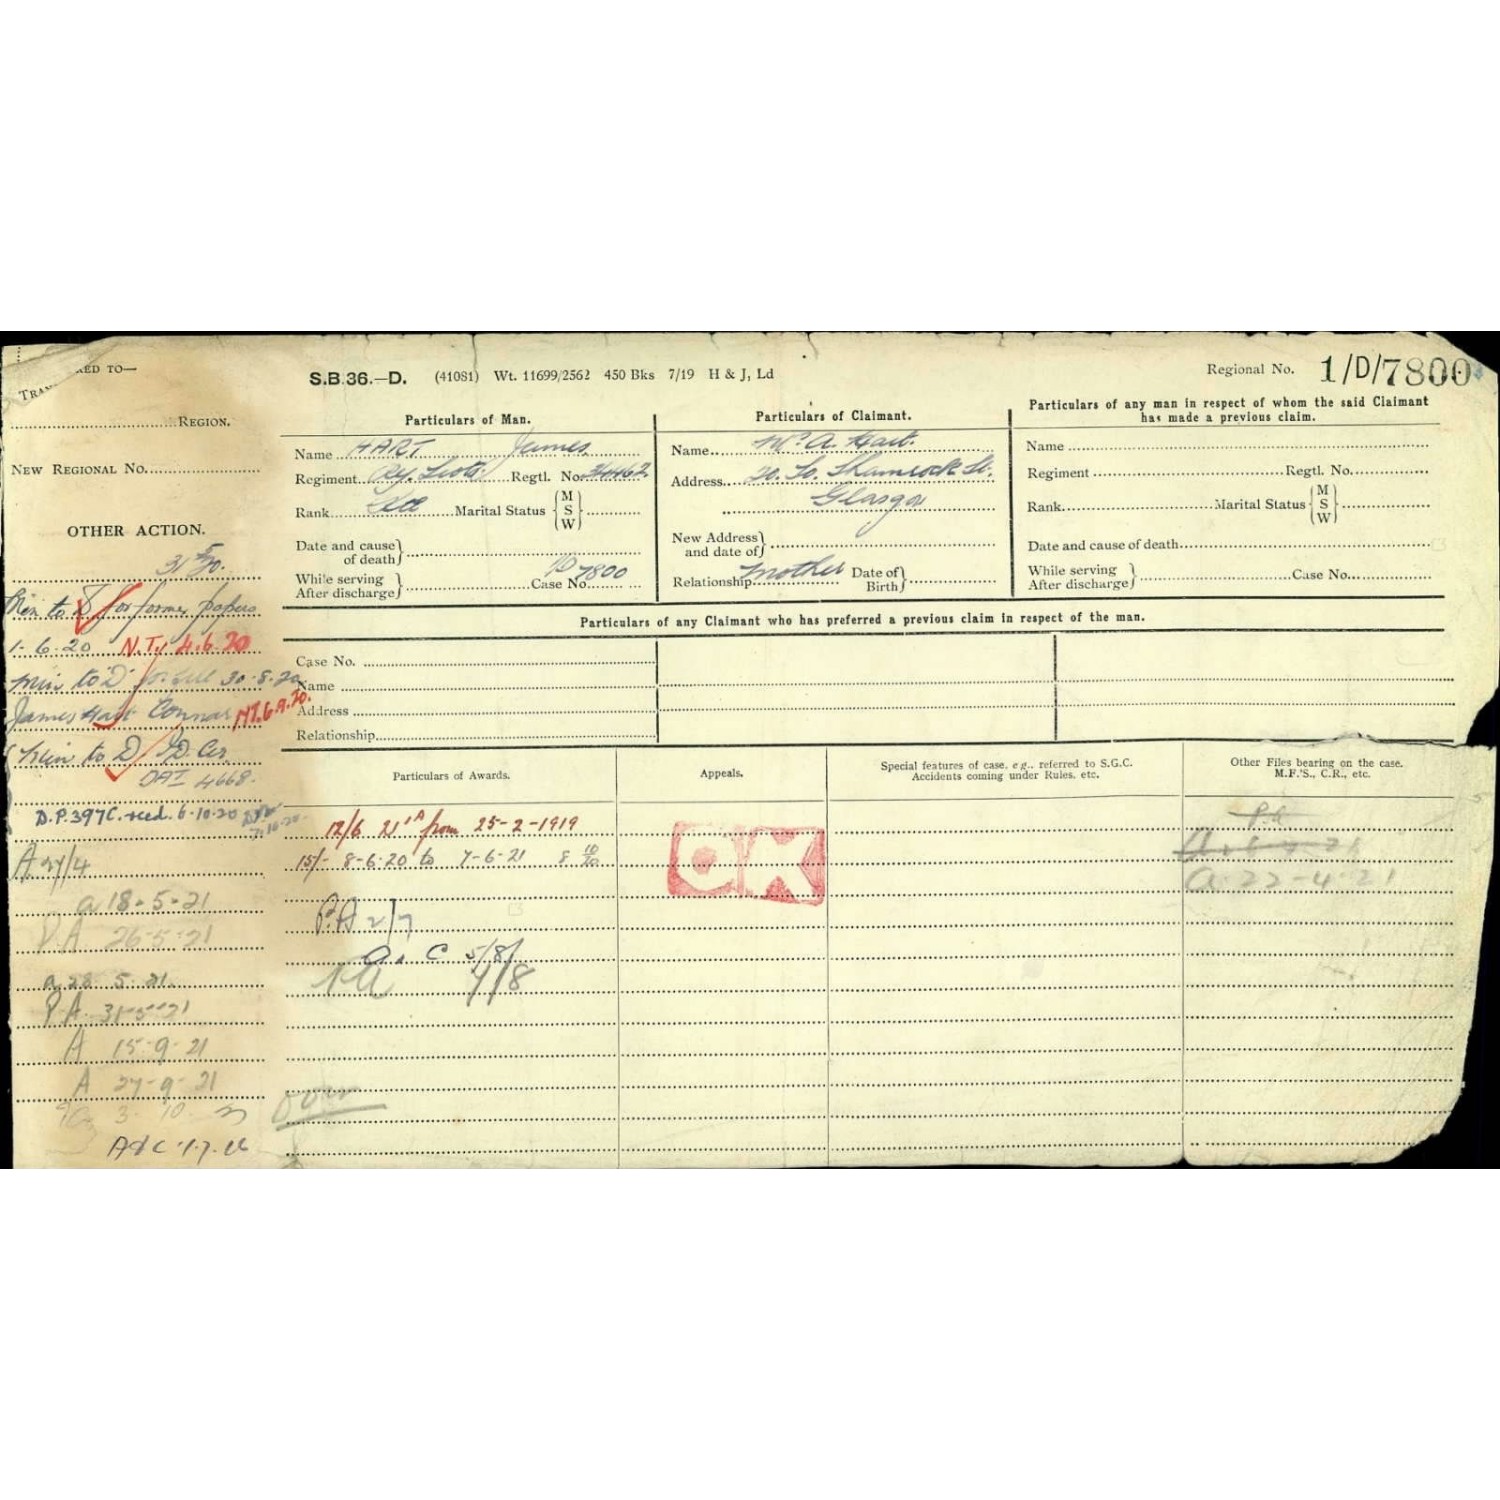 RED TO—
REGION.
NEW REGIONAL No.
OTHER ACTION.
Min to D for former papers
1.6.20 N.T. 4.6.20
Min to D 30.8.20
James Hart Connar N.T. 6.9.20.
Min to D
4668.
D.P. 397C. recd. 6.10.20
A 27/4
a 18-5-21
P.A 26-5-21
a 28 5.21.
P.A. 31-5-21
A 15-9-21
A 27-9-21
3 10
S.B.36.—D. (41081) Wt. 11699/2562 450 Bks 7/19 H & J, Ld
Regional No. 1/D/7800
Particulars of Man.
Name HART James
Regiment Ry. Scots Regtl. No. 34462
Rank Marital Status {M S W}
Date and cause of death}
While serving After discharge} Case No. 7800
Particulars of Claimant.
Name Mrs A. Hart.
Address 20. So. Shamrock St.
Glasgow
New Address and date of}
Relationship Mother Date of Birth}
Particulars of any man in respect of whom the said Claimant has made a previous claim.
Name
Regiment Regtl. No.
Rank Marital Status {M S W}
Date and cause of death
While serving After discharge} Case No.
Particulars of any Claimant who has preferred a previous claim in respect of the man.
Case No.
Name
Address
Relationship
Particulars of Awards.
12/6 from 25-2-1919
15/- 8-6-20 to 7-6-21
P.A 2/7
a. C 5/8
PA 7/8
over
Appeals.
OK
Special features of case, e.g., referred to S.G.C. Accidents coming under Rules, etc.
Other Files bearing on the case. M.F.'S., C.R., etc.
P.A
a. 22-4-21